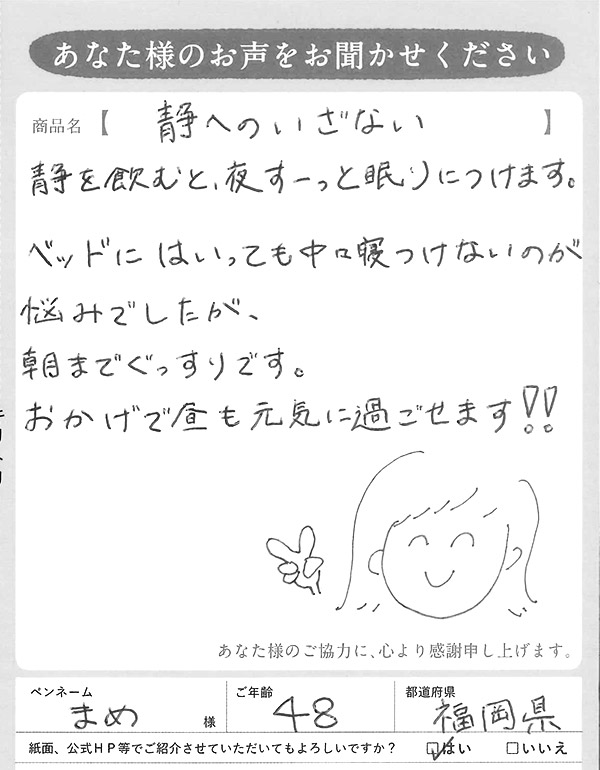 あなた様のお声をお聞かせください
商品名【 静へのいざない 】
静を飲むと、夜すーっと眠りにつけます。
ベッドにはいっても中々寝つけないのが
悩みでしたが、
朝までぐっすりです。
おかげで昼も元気に過ごせます!!
あなた様のご協力に、心より感謝申し上げます。
ペンネーム ご年齢 都道府県
まめ 様 48 福岡県
紙面、公式HP等でご紹介させていただいてもよろしいですか? ☑はい □いいえ